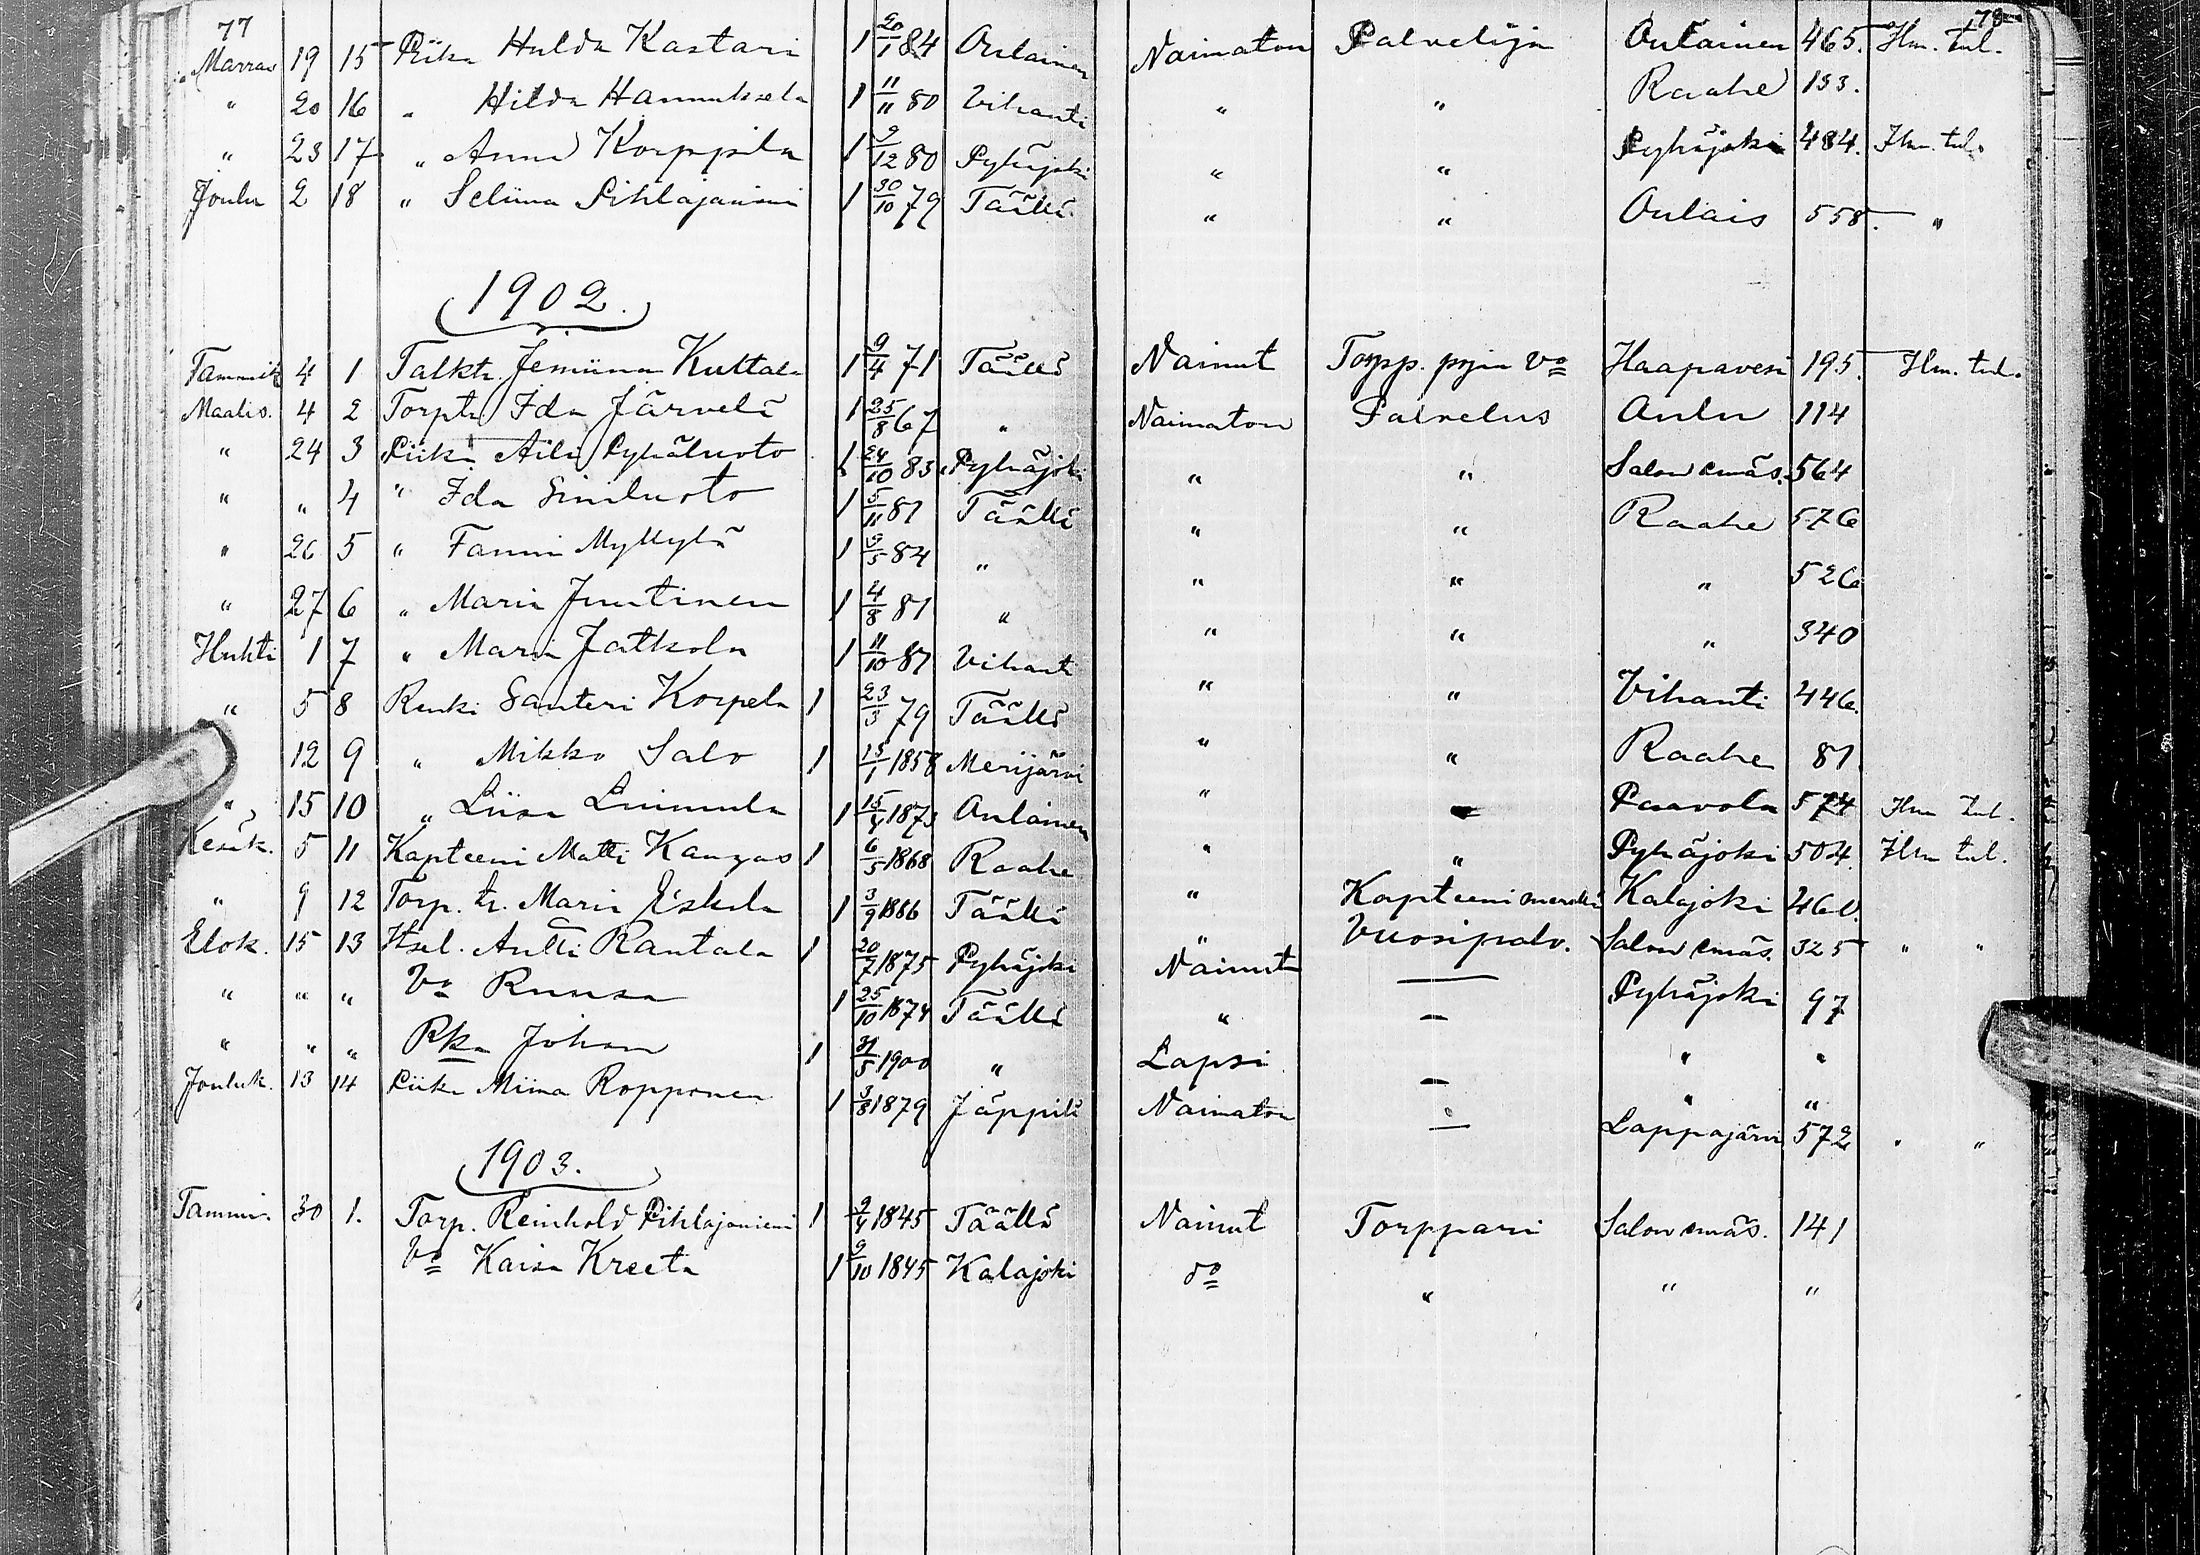 77 78
Marras 19 15 Piika Hulda Kastari 1 20/1 84 Oulainen Naimaton Palvelija Oulainen 465. Ilm. tul.
" 20 16 " Hilda Hannuksela 1 11/11 80 Vihanti " " Raahe 133.
" 23 17 " Anna Korppila 1 9/12 80 Pyhäjoki " " Pyhäjoki 484. Ilm. tul.
Joulu 2 18 " Seliina Pihlajaniemi 1 30/10 79 Täällä " " Oulais 558. "
1902.
Tammik 4 1 Talktr. Jemiina Kuttala 1 9/4 71 Täällä Nainut Torpp. pojan Vo Haapavesi 195. Ilm. tul.
Maalis. 4 2 Torptr Ida Järvelä 1 25/8 67 " Naimaton Palvelus Oulu 114
" 24 3 Piika Aili Pyhäluoto 1 24/10 83 Pyhäjoki " " Salon emäs. 564
" " 4 " Ida Siniluoto 1 5/11 81 Täällä " " Raahe 576
" 26 5 " Fanni Myllylä 1 9/5 84 " " " " 526
" 27 6 " Maria Juutinen 1 4/8 81 " " " " 340
Huhti 1 7 " Maria Jatkola 1 11/10 81 Vihanti " " Vihanti 446.
" 5 8 Renki Santeri Korpela 1 23/3 79 Täällä " " Raahe 81
12 9 " Mikko Salo 1 15/1 1858 Merijärvi " Paavola 574 Ilm tul.
" 15 10 " Liisa Linnula 1 15/4 1873 Oulainen " " Pyhäjoki 504. Ilm tul.
Kesäk. 5 11 Kapteeni Matti Kangas 1 6/5 1868 Raahe " Kapteeni merellä Kalajoki 460.
" 9 12 Torp. tr. Maria Eskola 1 3/9 1886 Täällä " Vuosipalv. Salon emäs. 325 " "
Elok. 15 13 Itsel. Antti Rantala 1 20/7 1875 Pyhäjoki Nainut — Pyhäjoki 97
" " " Vo Ruusa 1 25/10 1874 Täällä " — " "
" " " Pka Johan 1 31/5 1900 " Lapsi — " "
Jouluk. 13 14 Piika Miina Ropponen 1 3/8 1879 Jäppilä Naimaton — Lappajärvi 572 " "
1903.
Tammi. 30 1. Torp. Reinhold Pihlajaniemi 1 2/4 1845 Täällä Nainut Torppari Salon emäs. 141
Vo Kaisa Kreeta 1 9/10 1845 Kalajoki do " " "